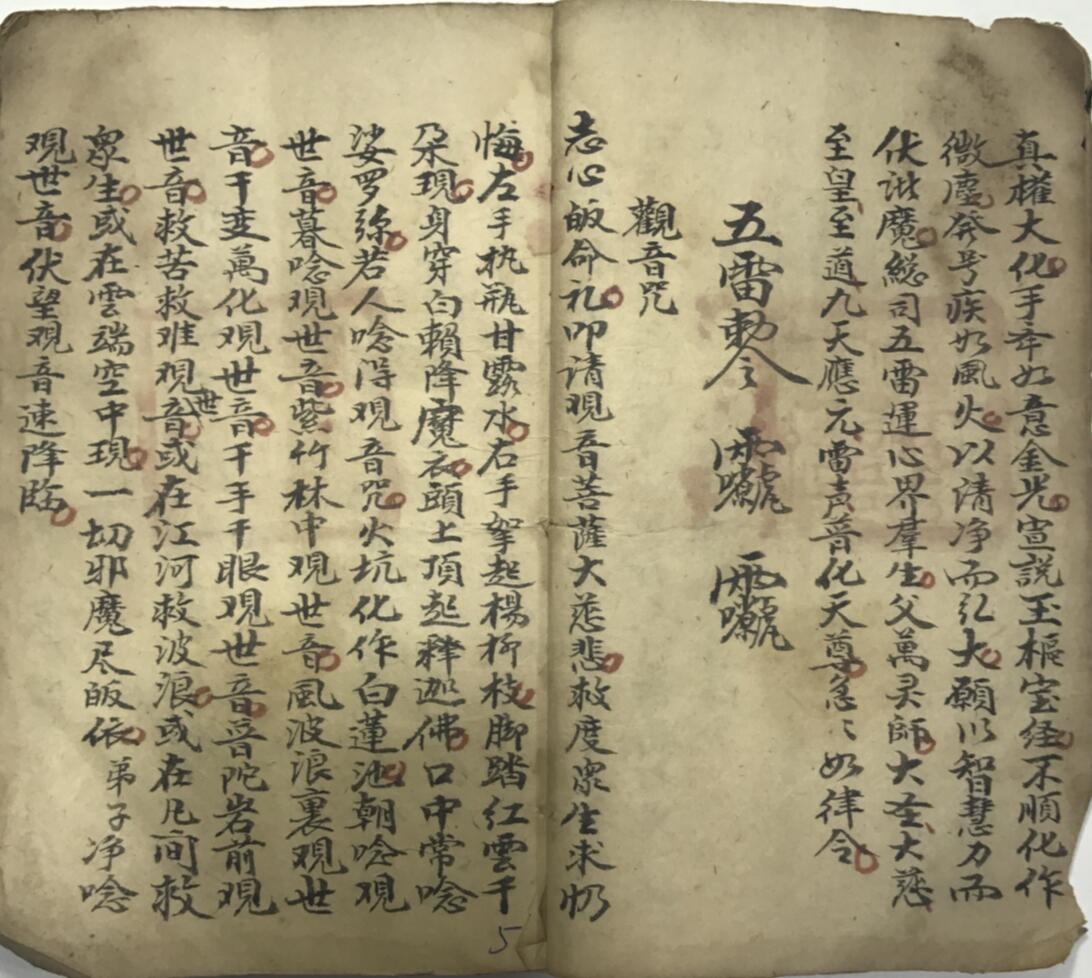 真權大化手夲如意金光宣説玉樞宝经不順化作
微塵發号疾如風火以清净而弘大願以智慧力而
伏诸魔総司五雷運心界羣生父萬灵師大圣大慈
至皇至道九天應元雷声普化天尊急〻如律令
五雷勅令
觀音咒
志心皈命礼叩請观音菩薩大慈悲救度眾生求忏
悔左手执瓶甘露水右手拏起楊柳枝脚踏红雲千
朵现身穿白賴降魔衣頭上頂起释迦佛口中常唸
娑罗絲若人唸淂观音咒火坑化作白蓮池朝唸观
世音暮唸观世音紫竹林中观世音風波浪裏观世
音千变萬化观世音千手千眼观世音普陀岩前观
世音救苦救难观世音或在江河救波浪或在凡间救
眾生或在雲端空中现一切邪魔尽皈依弟子净唸
观世音伏望观音速降臨
5